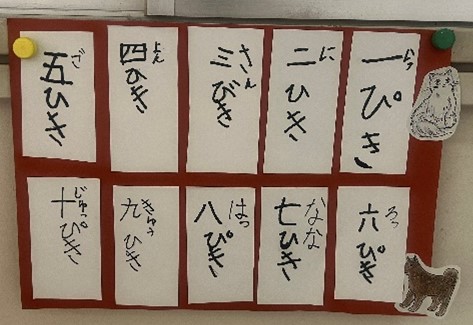 一ぴき
いっ
二ひき
に
三びき
さん
四ひき
よん
五ひき
ご
六ぴき
ろっ
七ひき
なな
八ぴき
はっ
九ひき
きゅう
十ぴき
じゅっ